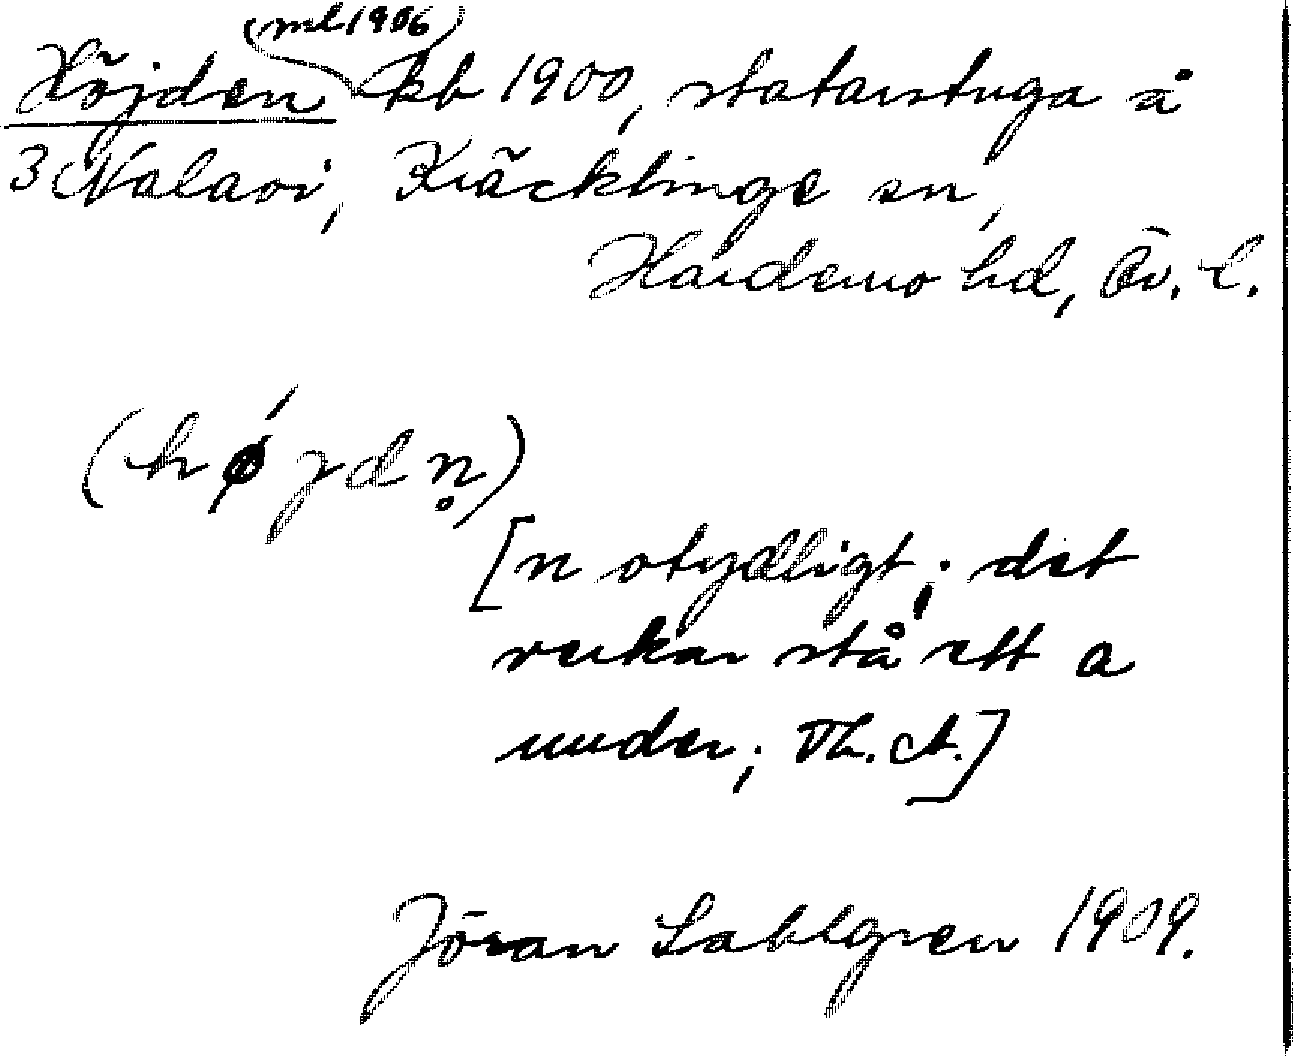 (ml 1906)
Höjden kb 1900, statarstuga å
3 Nalavi, Kräcklinge sn,
Hardemo hd, Ör. l.
(hǿjdn̥)
[n otydligt; det
verkar stå ett a
under; Th. A.]
Jöran Sahlgren 1909.